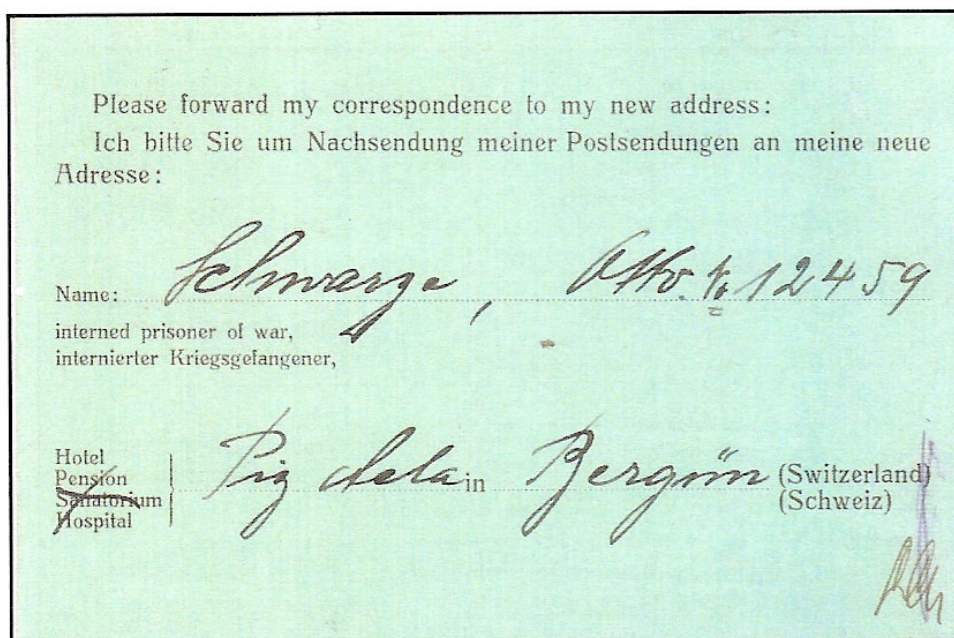 Please forward my correspondence to my new address:
Ich bitte Sie um Nachsendung meiner Postsendungen an meine neue
Adresse:
Name: Schwarze, Otto. No 12459
interned prisoner of war,
internierter Kriegsgefangener,
Hotel
Pension
Sanatorium
Hospital
Piz Aela in Bergün (Switzerland)
(Schweiz)